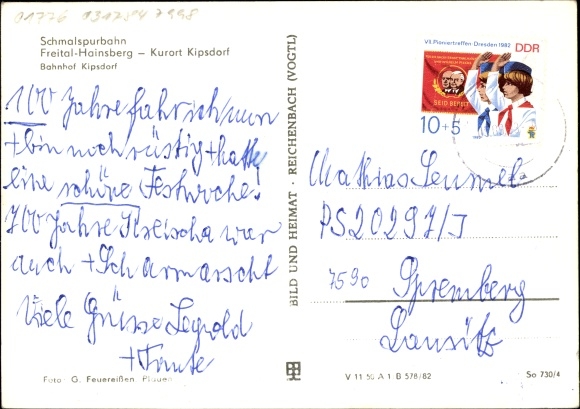 01776 031784 7998
Schmalspurbahn
Freital-Hainsberg – Kurort Kipsdorf
Bahnhof Kipsdorf
100 Jahre fahr ich nun
+ bin noch rüstig + hatte
eine schöne Festwoche.
700 Jahre Kreischa war
auch +
Viele Grüsse Leopold
+ Traute
Foto: G. Feuereißen, Plauen
BILD UND HEIMAT · REICHENBACH (VOGTL)
VII. Pioniertreffen · Dresden 1982
DDR
SEID BEREIT
10+5
Mathias
PS 20297/J
7590 Spremberg
Lausitz
V 11 50 A 1 B 578/82
So 730/4